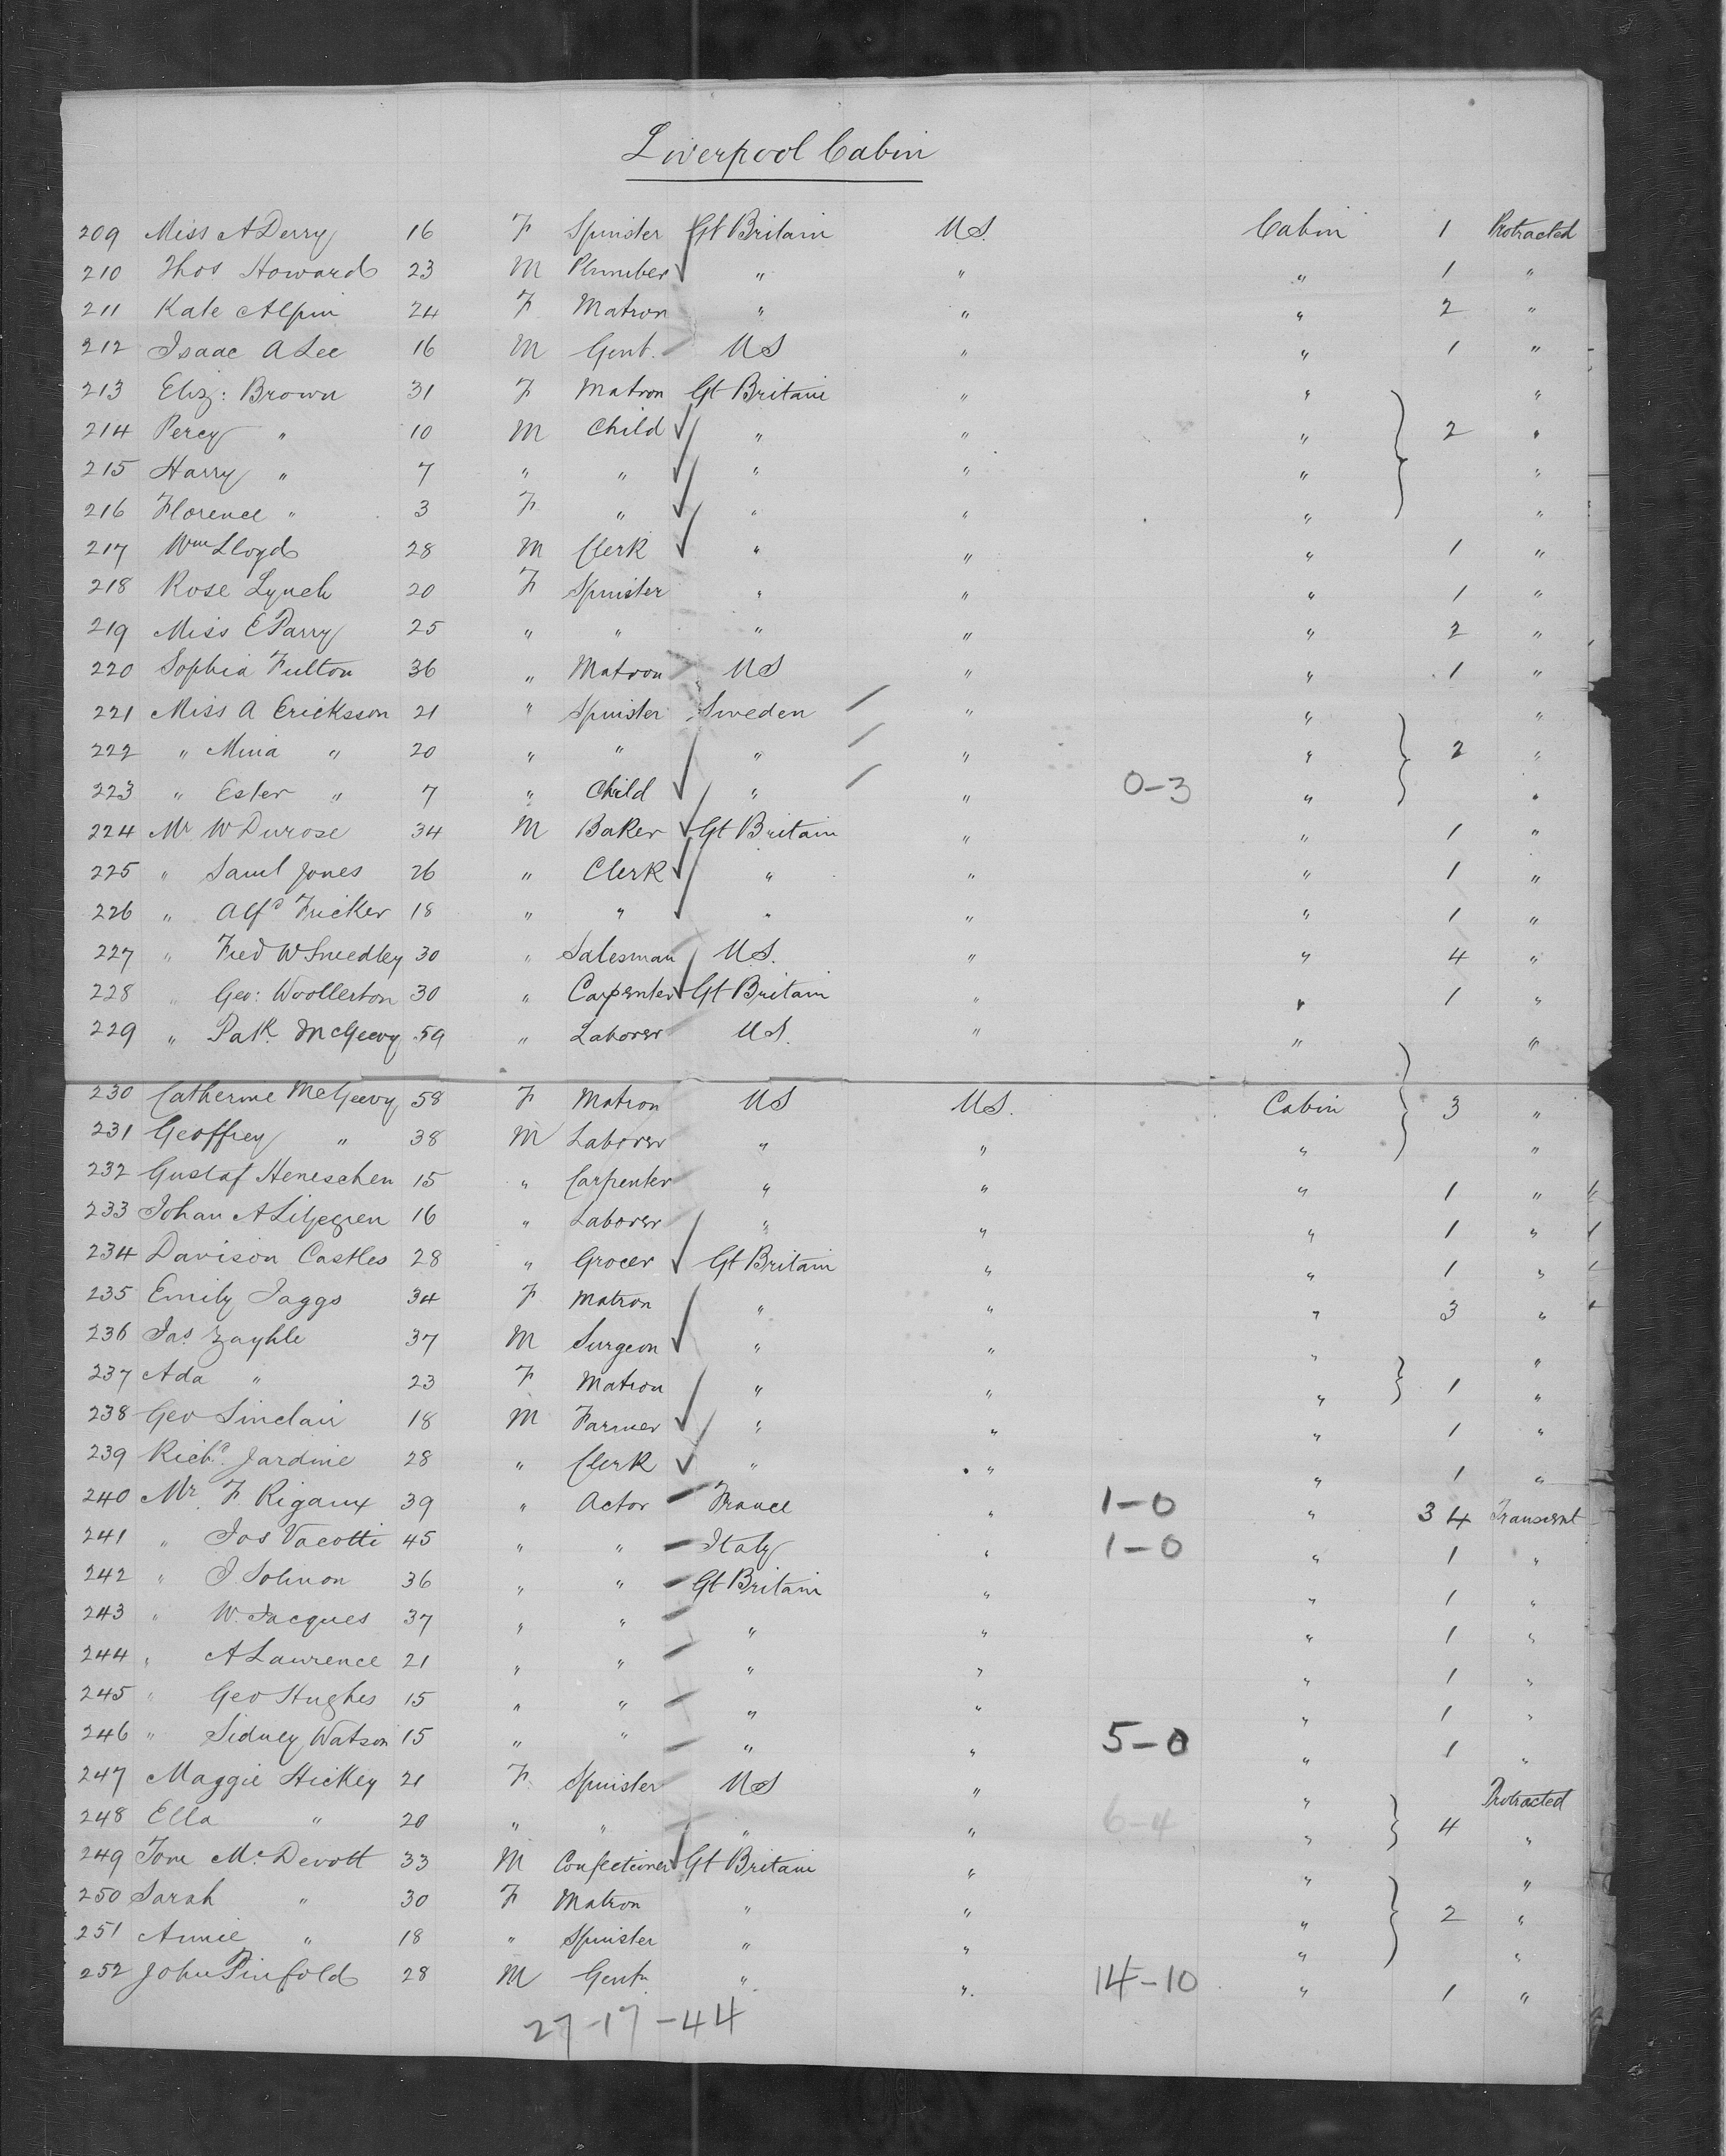 Liverpool Cabin
209 Miss A Derry 16 F Spinister Gt Britain U.S. Cabin 1 Protracted
210 Thos Howard 23 M Plumber " " " 1 "
211 Kate Alpin 24 F Matron " " " 2 "
212 Isaac A Lee 16 M Gent. US " " 1 "
213 Eliz: Brown 31 F Matron Gt Britain " " "
214 Percy " 10 M Child " " " 2 "
215 Harry " 7 " " " " " "
216 Florence " 3 F " " " " "
217 Wm Lloyd 28 M Clerk " " " 1 "
218 Rose Lynch 20 F Spinister " " " 1 "
219 Miss E Parry 25 " " " " " 2 "
220 Sophia Fulton 36 " Matron US " " 1 "
221 Miss A Ericksson 21 " Spinister Sweden " " "
222 " Mina " 20 " " " " " 2 "
223 " Ester " 7 " Child " " 0-3 " "
224 Mr W Durose 34 M Baker Gt Britain " " 1 "
225 " Saml Jones 26 " Clerk " " " 1 "
226 " Alfd Fricker 18 " " " " " 1 "
227 " Fred W Smedley 30 " Salesman U.S. " " 4 "
228 " Geo: Woollerton 30 " Carpenter Gt Britain " " 1 "
229 " Patk McGeevy 59 " Laborer U.S. " " "
230 Catherine McGeevy 58 F Matron US U.S. Cabin 3 "
231 Geoffrey " 38 M Laborer " " " "
232 Gustaf Heneschen 15 " Carpenter " " " 1 "
233 Johan A Liljegren 16 " Laborer " " " 1 "
234 Davison Castles 28 " Grocer Gt Britain " " 1 "
235 Emily Jaggs 34 F Matron " " " 3 "
236 Jas. Zayhle 37 M Surgeon " " " "
237 Ada " 23 F Matron " " " 1 "
238 Geo Sinclair 18 M Farmer " " " 1 "
239 Richd. Jardine 28 " Clerk " " " 1 "
240 Mr. F. Rigaux 39 " Actor France " 1-0 " 3 4 Transient
241 " Jos Vacotti 45 " " Italy " 1-0 " 1 "
242 " J. Solmon 36 " " Gt Britain " " 1 "
243 " W. Jacques 37 " " " " " 1 "
244 " A Lawrence 21 " " " " " 1 "
245 " Geo Hughes 15 " " " " " 1 "
246 " Sidney Watson 15 " " " " 5-0 " 1 "
247 Maggie Hickey 21 F Spinister US " " Protracted
248 Ella " 20 " " " " 6-4 " 4 "
249 Tom McDevott 33 M Confectioner Gt Britain " " "
250 Sarah " 30 F Matron " " " 2 "
251 Annie " 18 " Spinister " " " "
252 John Pinfold 28 M Gent " " 14-10 " 1 "
27-17-44